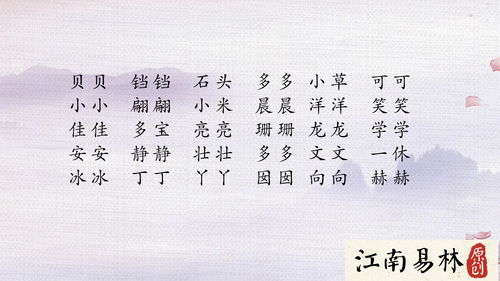 贝贝 铛铛 石头 多多 小草 可可
小小 翩翩 小米 晨晨 洋洋 笑笑
佳佳 多宝 亮亮 珊珊 龙龙 学学
安安 静静 壮壮 多多 文文 一休
冰冰 丁丁 丫丫 囡囡 向向 赫赫
江南易林 原创